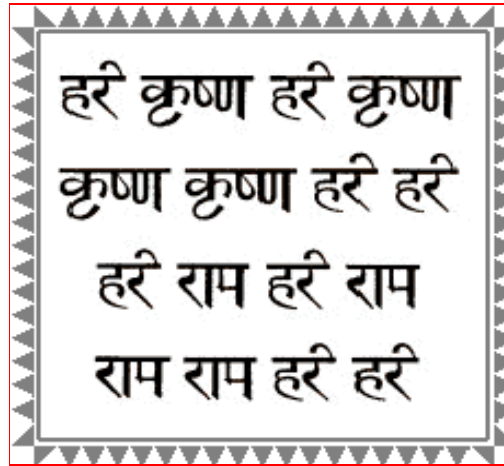 हरे कृष्ण हरे कृष्ण
कृष्ण कृष्ण हरे हरे
हरे राम हरे राम
राम राम हरे हरे